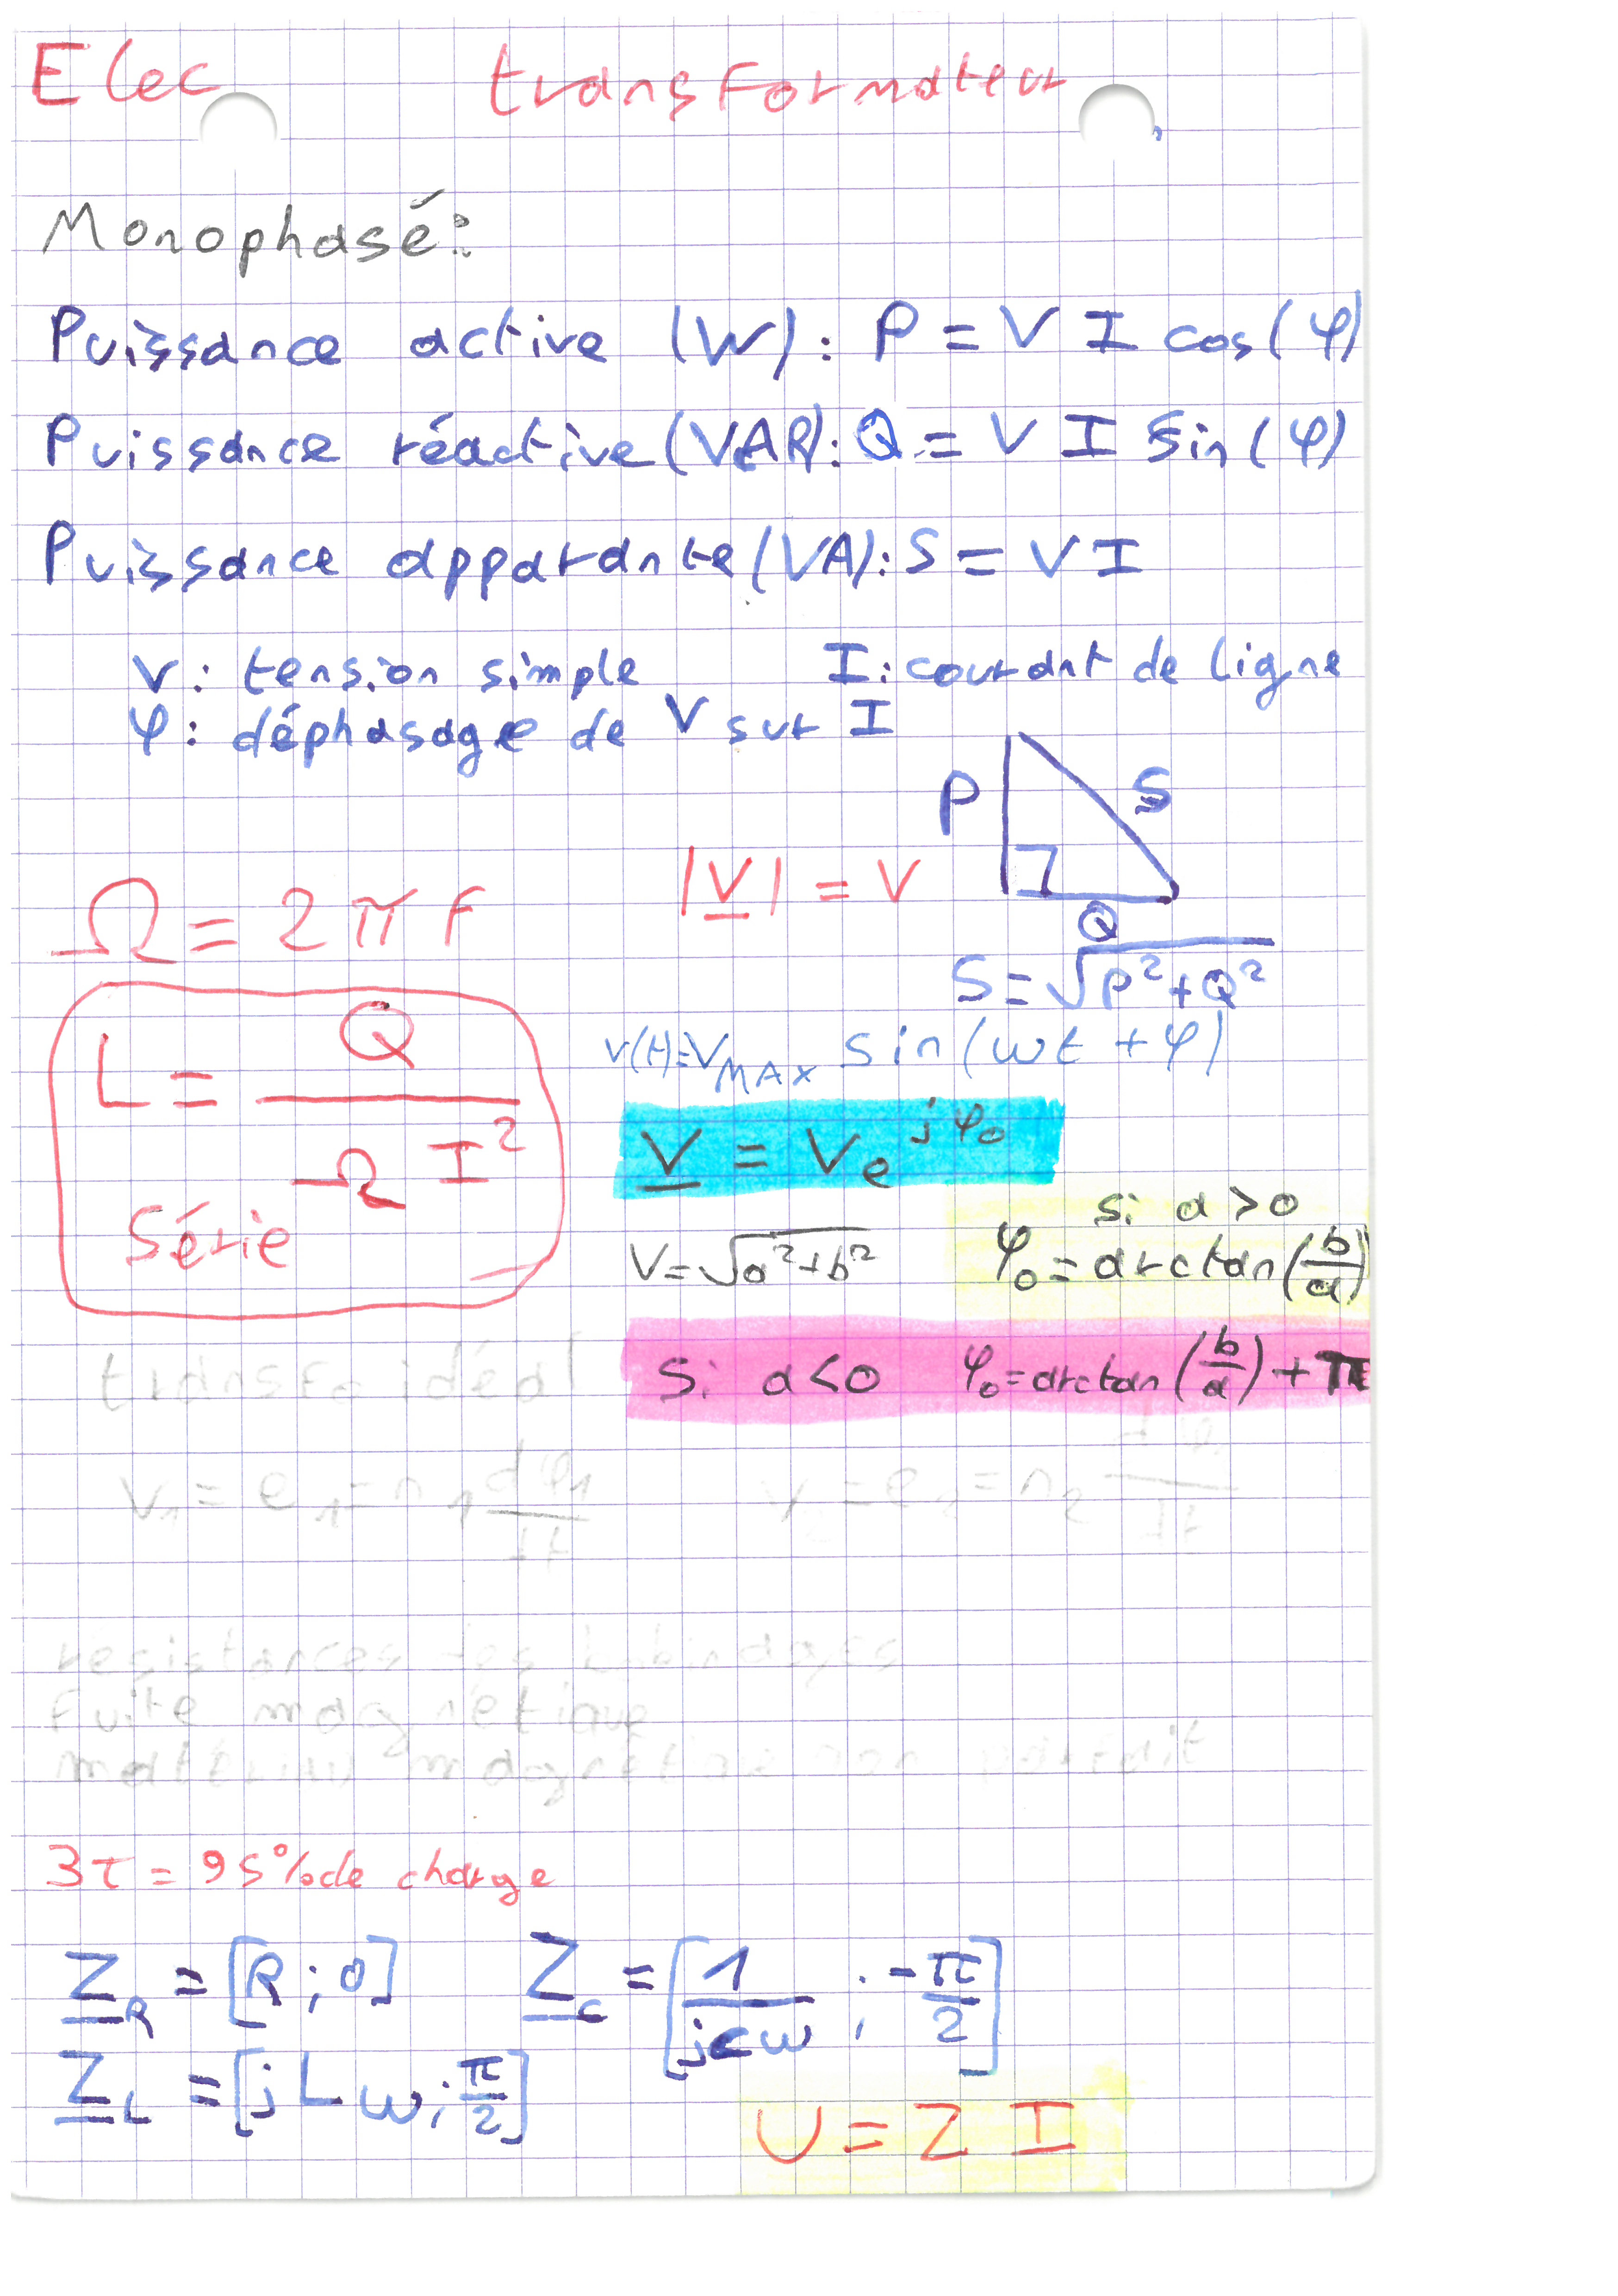 Elec transformateur
Monophasé:
Puissance active (W): P = V I cos(φ)
Puissance réactive (VAR): Q = V I sin(φ)
Puissance apparante (VA): S = V I
V: tension simple I: courant de ligne
φ: déphasage de V sur I
P S
|V| = V
Q
Ω = 2 π f
S = √P²+Q²
L = Q / Ω I²
Série
v(t)=V MAX sin(ωt + φ)
V = V e^jφ₀
si a > 0
V = √a²+b² φ₀ = arctan(b/a)
transfo idéal Si a < 0 φ₀ = arctan(b/a) + π
V₁ = e₁ = n₁ dφ₁/dt = n₂
résistances des bobinages
Fuite magnétique
magnétique non parfait
3τ = 95% de charge
Z_R = [R ; 0] Z_C = [1/jCω ; -π/2]
Z_L = [jLω ; π/2]
U = Z I